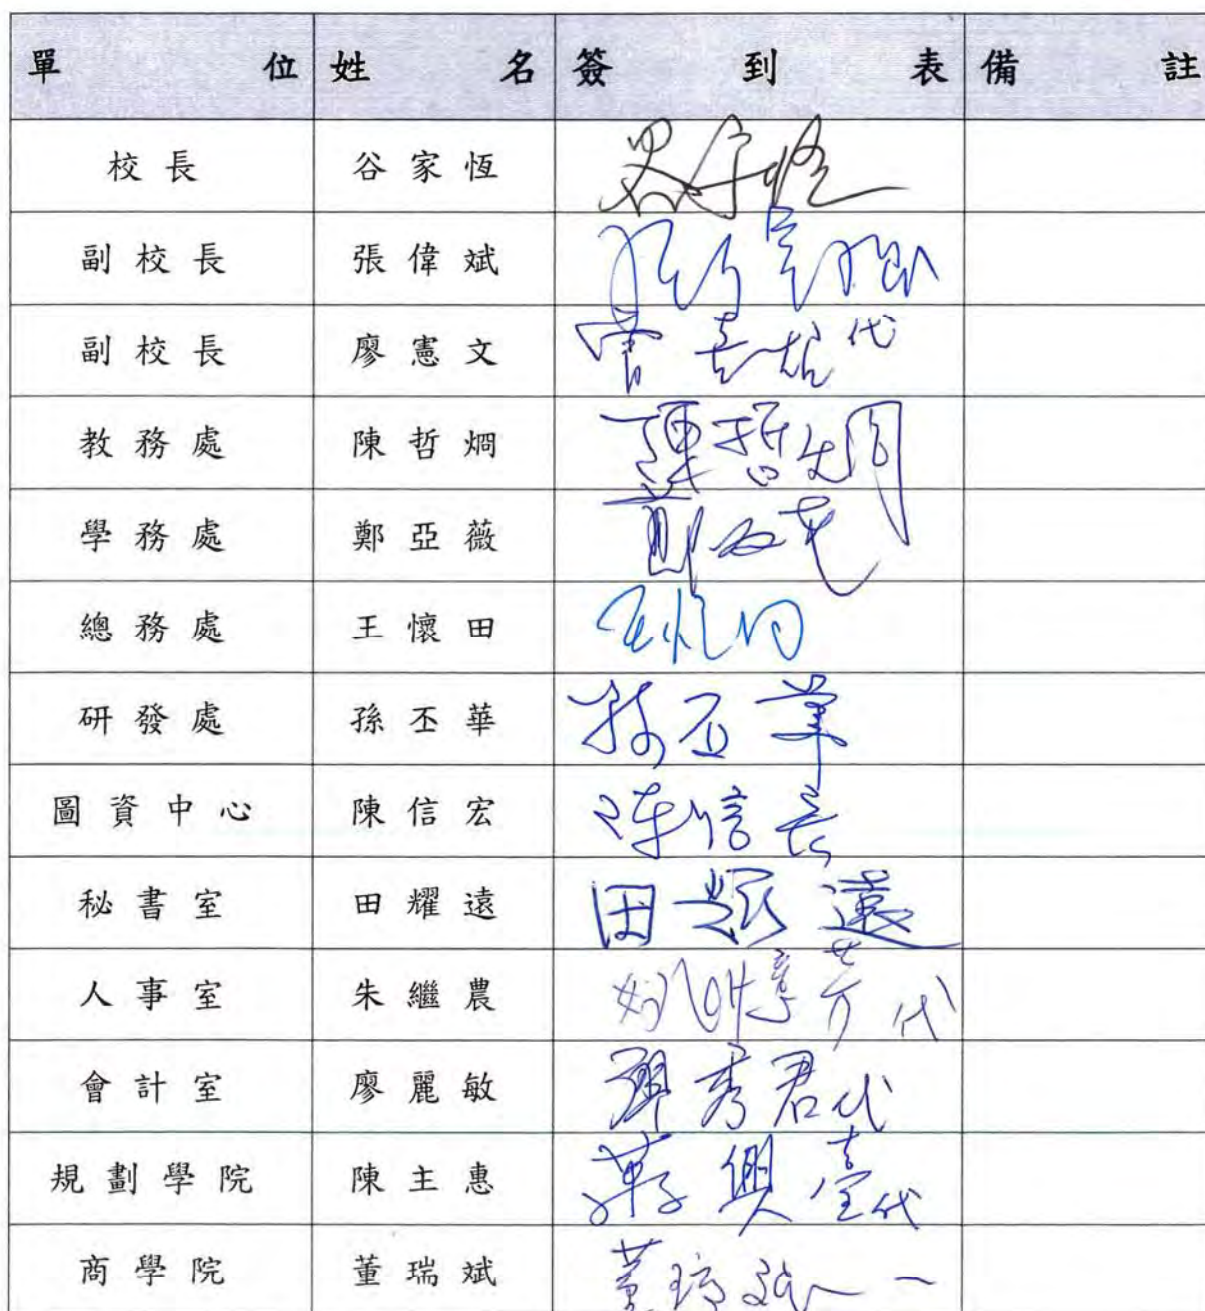 單位 姓名 簽到表 備註
校長 谷家恆
副校長 張偉斌
副校長 廖憲文 代
教務處 陳哲烱 陳哲烱
學務處 鄭亞薇
總務處 王懷田 王懷田
研發處 孫丕華 孫丕華
圖資中心 陳信宏 陳信宏
秘書室 田耀遠 田耀遠
人事室 朱繼農 代
會計室 廖麗敏 秀君代
規劃學院 陳主惠 代
商學院 董瑞斌 董瑞斌